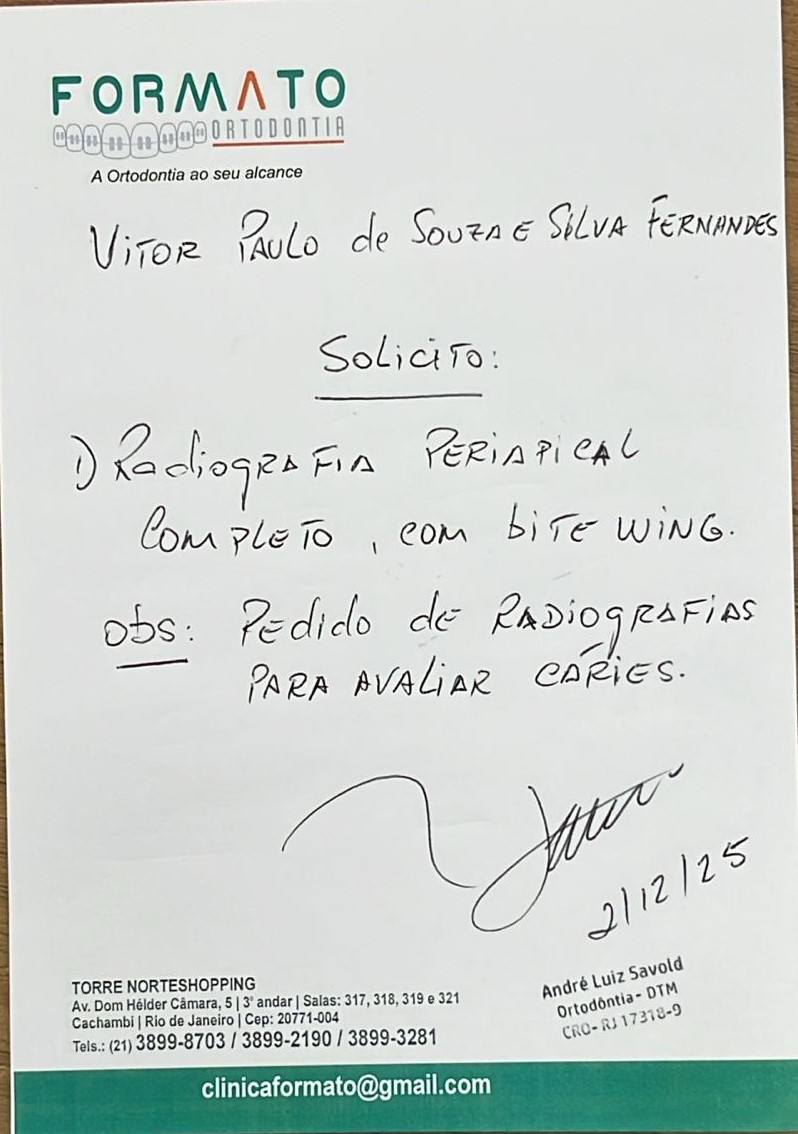 FORMATO
ORTODONTIA
A Ortodontia ao seu alcance
VITOR PAULO de SOUZA E SILVA FERNANDES
SOLICITO:
1) RadiogRAFIA PERIAPICAL
COMPLETO, COM biTE WING.
obs: PEdido dE RADiogRAFIAS
PARA AVALIAR CÁRIES.
2/12/25
André Luiz Savold
Ortodôntia - DTM
CRO- RJ 17318-9
TORRE NORTESHOPPING
Av. Dom Hélder Câmara, 5 | 3º andar | Salas: 317, 318, 319 e 321
Cachambi | Rio de Janeiro | Cep: 20771-004
Tels.: (21) 3899-8703 / 3899-2190 / 3899-3281
clinicaformato@gmail.com